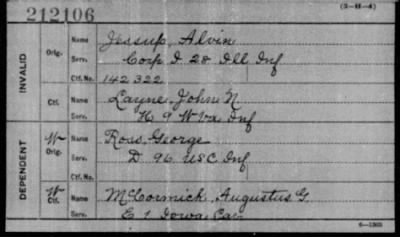 212106 (3-H-4)
INVALID Orig. Name Jessup, Alvin
Serv. Corp D 28 Ill Inf
Ctf. No. 142322
Ctf. Name Layne John N
Serv. K 9 W Va Inf
DEPENDENT W Orig. Name Ross, George
Serv. D 96 USC Inf
Ctf. No.
W Ctf. Name McCormick, Augustus G.
Serv. E 1 Iowa Cav
6-1303